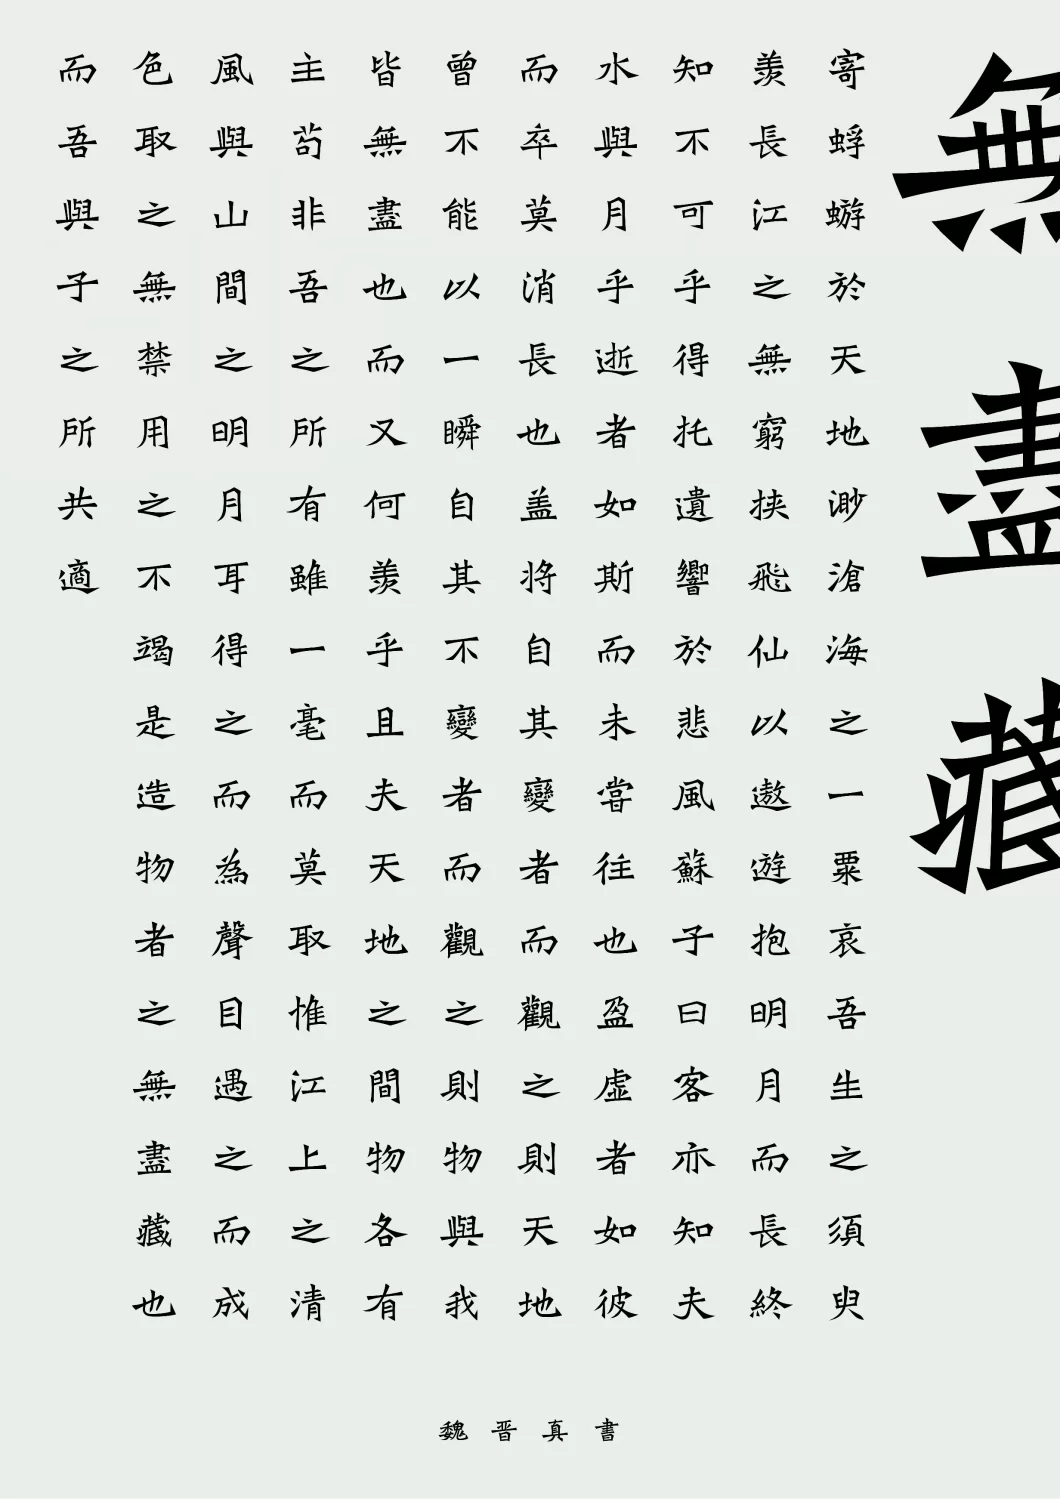 無盡藏
寄蜉蝣於天地渺滄海之一粟哀吾生之須臾
羨長江之無窮挟飛仙以遨遊抱明月而長終
知不可乎得托遺響於悲風蘇子曰客亦知夫
水與月乎逝者如斯而未嘗往也盈虛者如彼
而卒莫消長也盖將自其變者而觀之則天地
曾不能以一瞬自其不變者而觀之則物與我
皆無盡也而又何羨乎且夫天地之間物各有
主苟非吾之所有雖一毫而莫取惟江上之清
風與山間之明月耳得之而為聲目遇之而成
色取之無禁用之不竭是造物者之無盡藏也
而吾與子之所共適
魏晋真書